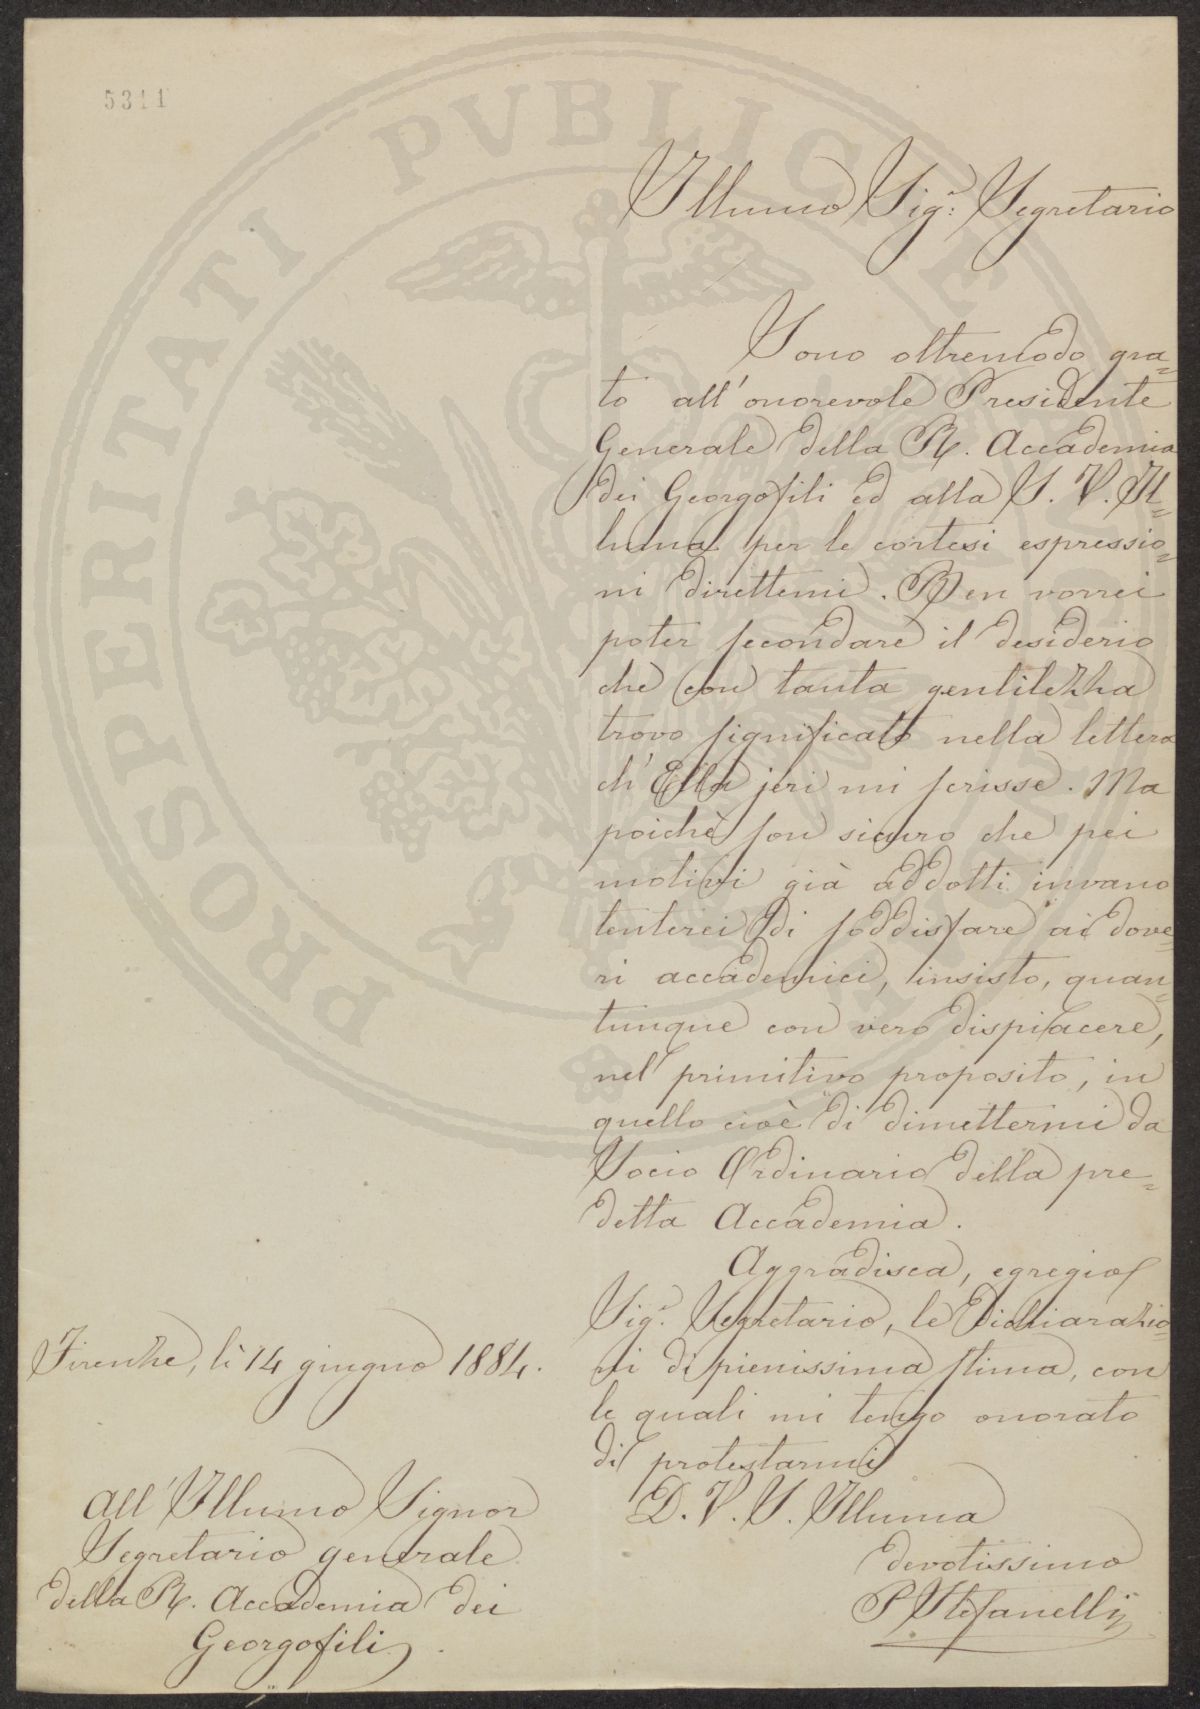 5311
PROSPERITATI PVBLICAE
Illumo Sigr: Segretario
Sono oltremodo gra=
to all'onorevole Presidente
Generale della R. Accademia
dei Georgofili ed alla S. V. Il=
luma per le cortesi espressio=
ni direttemi. Ben vorrei
poter secondare il desiderio
che con tanta gentilezza
trovo significato nella lettera
ch'Ella jeri mi scrisse. Ma
poichè son sicuro che pei
motivi già addotti invano
tenterei di soddisfare ai dove=
ri accademici, insisto, quan=
tunque con vero dispiacere,
nel primitivo proposito, in
quello cioè di dimettermi da
Socio Ordinario della pre=
detta Accademia.
Aggradisca, egregio
Sigr. Segretario, le dichiarazio=
ni di pienissima stima, con
le quali mi tengo onorato
di protestarmi
D. V. S. Illuma
devotissimo
P Stefanelli
Firenze, lì 14 giugno 1884.
All'Illumo Signor
Segretario generale
della R. Accademia dei
Georgofili